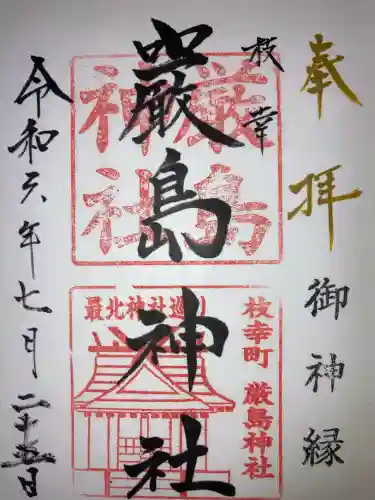 奉拝
御神縁
枝幸
巌島神社
厳島
神社
最北神社巡り
枝幸町 厳島神社
令和六年七月二十五日